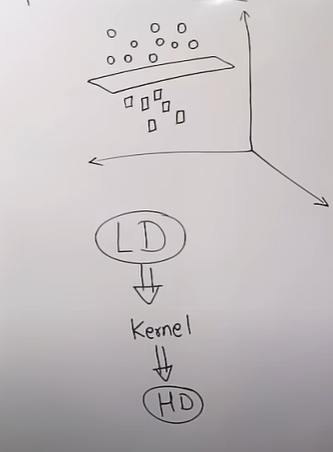 LD
Kernel
HD